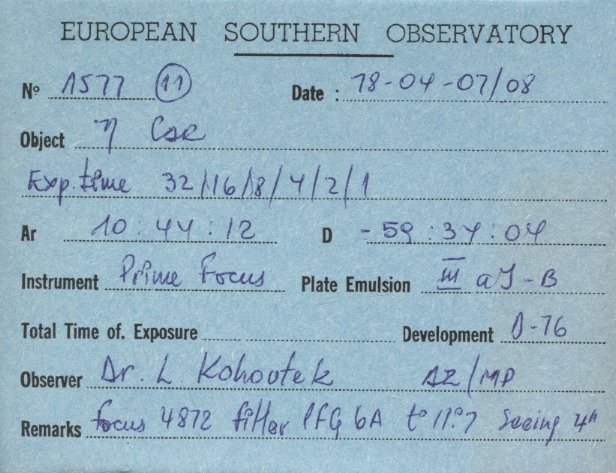 EUROPEAN SOUTHERN OBSERVATORY
Nº 1577 (11) Date : 78-04-07/08
Object η Car
Exp. time 32/16/8/4/2/1
Ar 10:44:12 D -59:34:04
Instrument Prime Focus Plate Emulsion III aJ-B
Total Time of. Exposure Development D-76
Observer Dr. L Kohoutek AZ/MP
Remarks focus 4872 filter 6A t° 11.°7 Seeing 4"